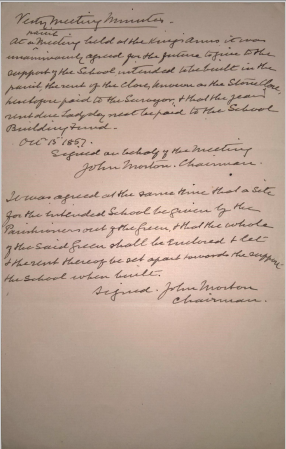 Vestry Meeting Minutes.
At a Meeting held at the King's Arms it was
unanimously agreed for the future to give to the
support of the School intended to be built in the
parish, the rent of the Close, known as the Stone
heretofore paid to the Surveyor, & that the years
rent due Ladyday next be paid to the School
Building Fund.
Oct 15 1857.
Signed on behalf of the Meeting
John Morton. Chairman.
It was agreed at the same time that a Site
for the intended School be given by the
Parishioners out of the Green, & that the whole
of the Said Green shall be enclosed & let
& the rent thereof be set apart towards the support
the School when built.
Signed. John Morton
Chairman.